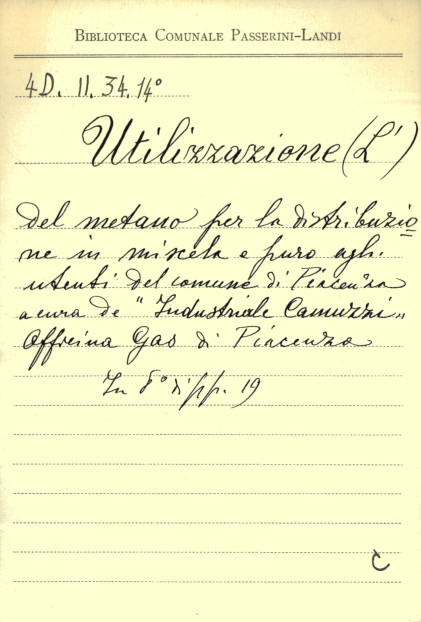 BIBLIOTECA COMUNALE PASSERINI-LANDI
4D. II. 34. 14°
Utilizzazione (L')
del metano per la distribuzio=
ne in miscela e puro agli
utenti del comune di Piacenza
a cura de "Industriale Camuzzi"
Officina Gas di Piacenza
In 8° di pp. 19
C